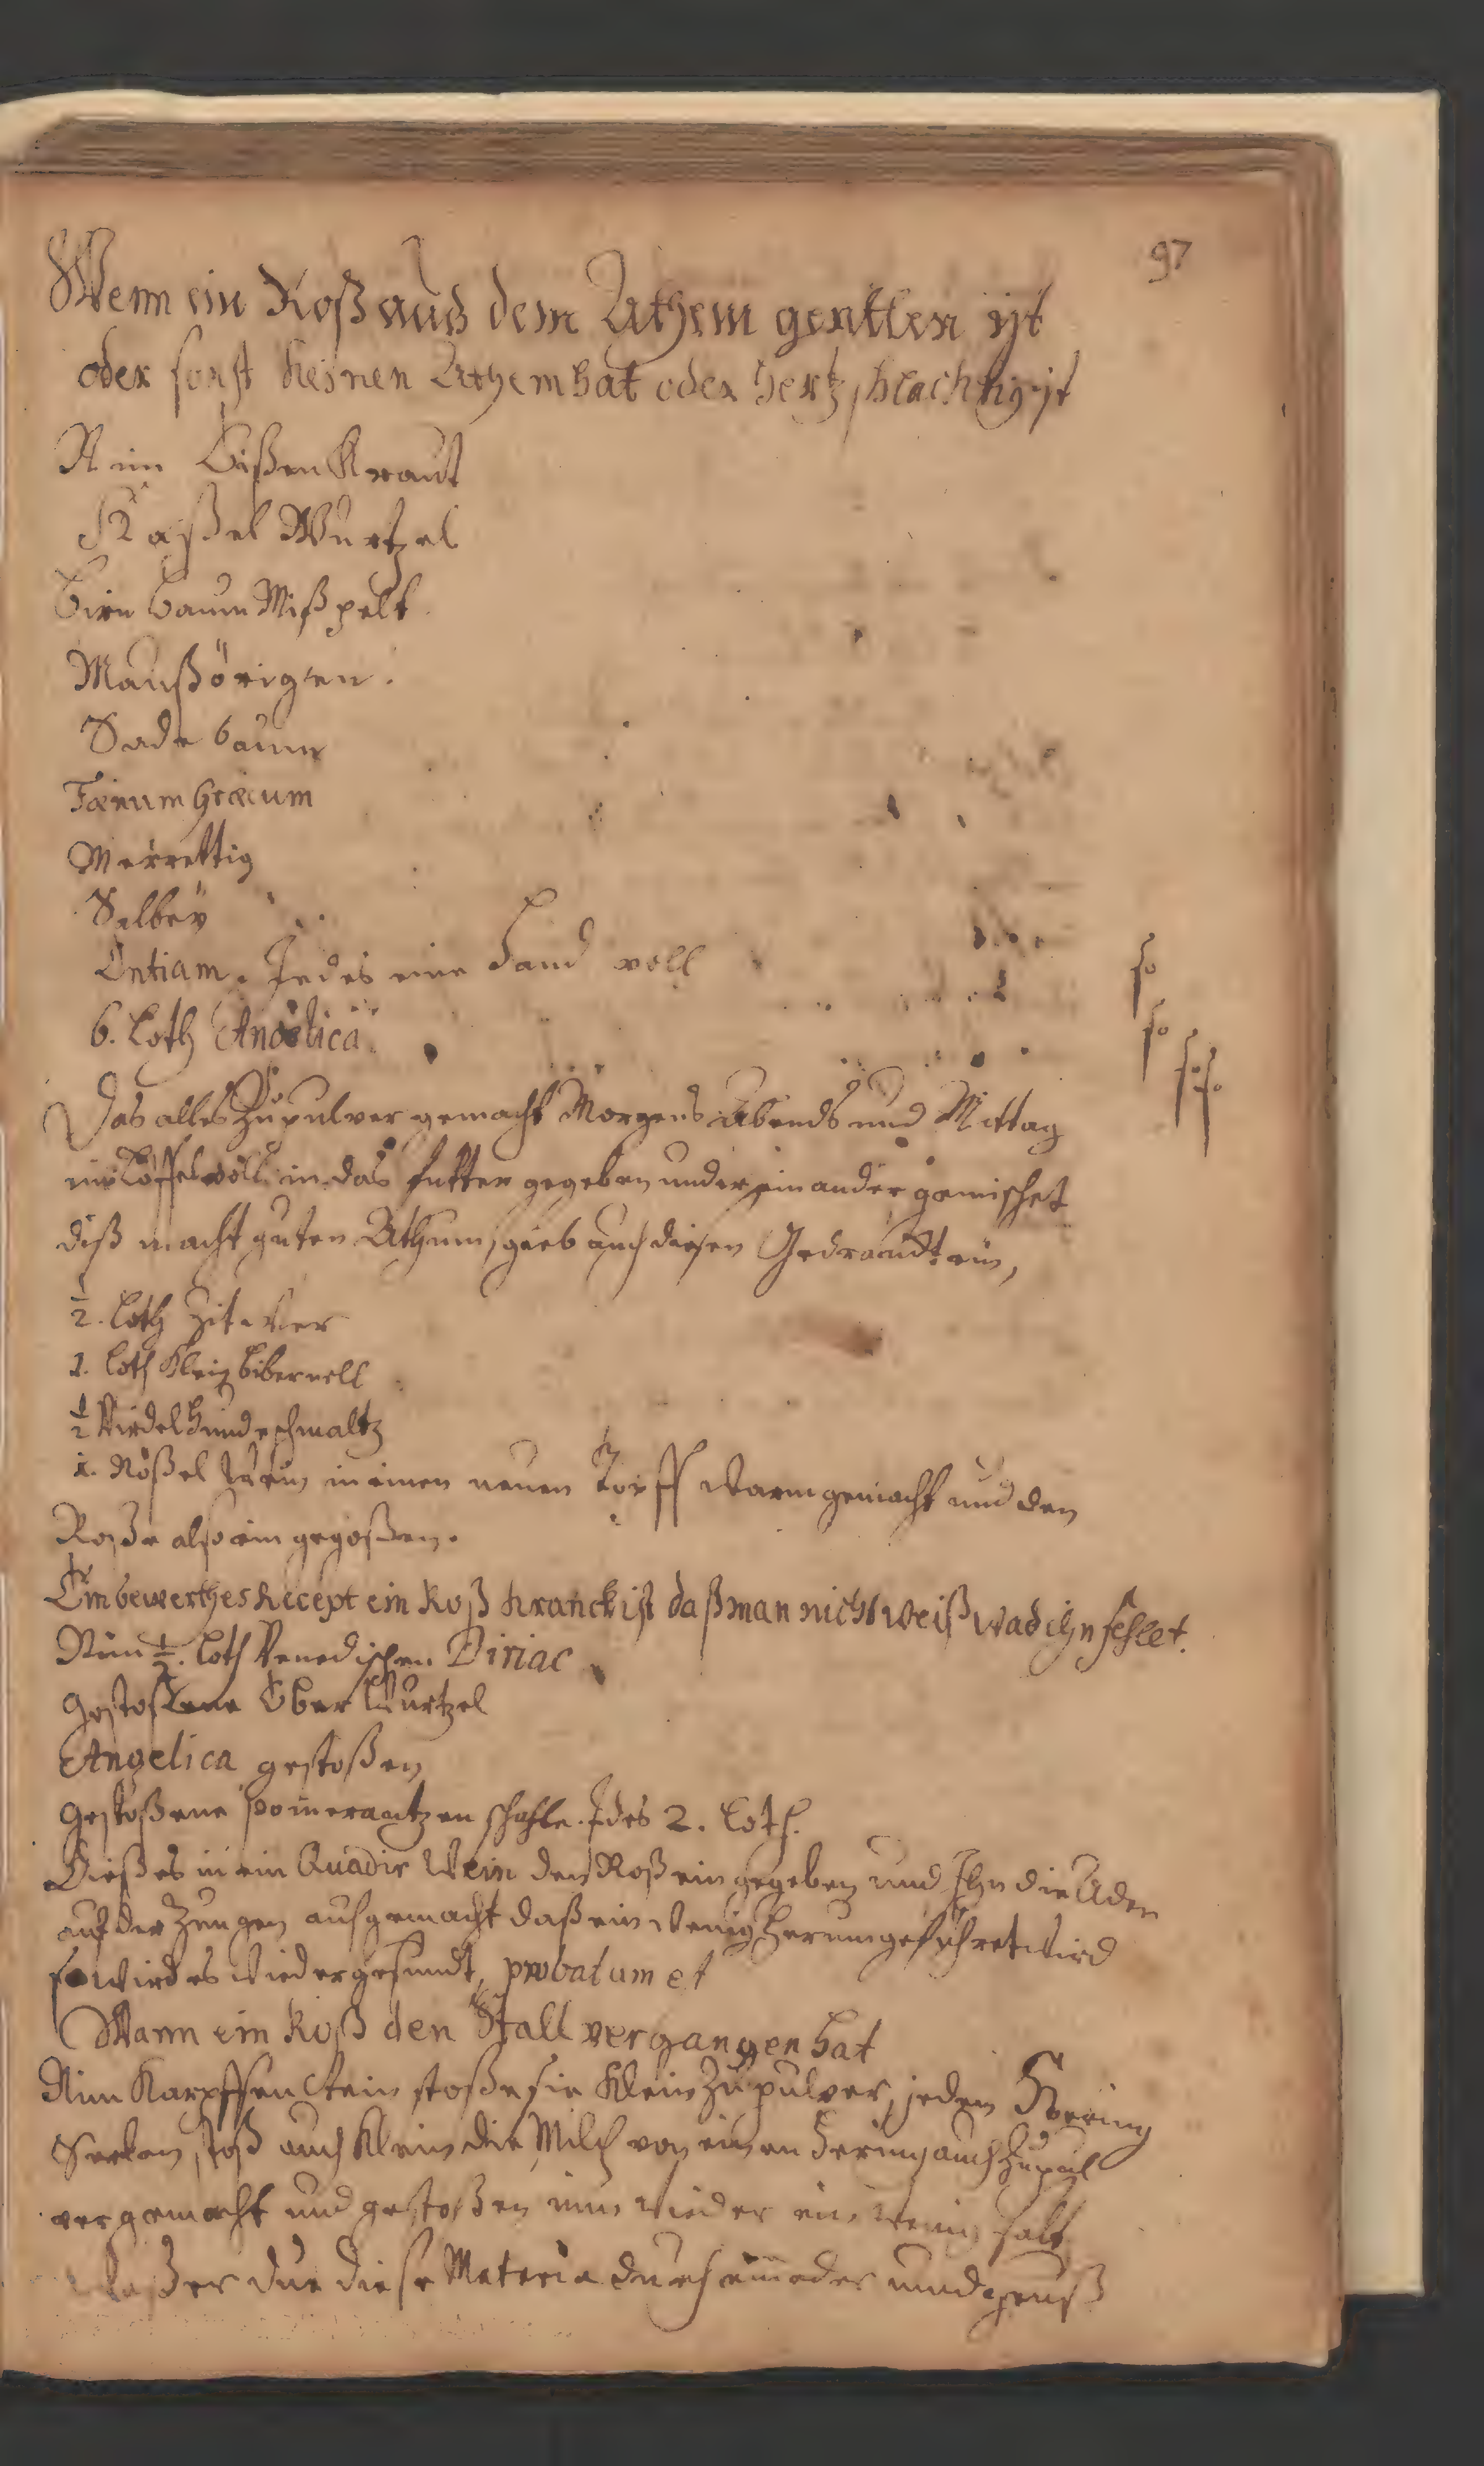 97
Wenn ein Roß aus dem Athem geritten ist
oder sonst keinen Athem hat oder hertzschlachtig ist
Nim Bißen Kraut
Haßel Wurtzel
Birn baum Mißpelt
Maußörigen.
Sade baum
Fœnum Græcum
Merrettig
Salbey
Entiam. Jedes eine Hand voll
6. Loth Angelica
Das alles Zu pulver gemacht Morgens Abends und Mittag
ein Löffel voll in das futter gegeben under ein ander gemischet
diß macht guten Athum, gieb auch diesen Gedranckt ein,
½. Loth Zit wer
1. Loth Klein bibernell
½ Virdel Hundeschmaltz
1. Nößel Wein in einen neuen Topff warm gemacht und den
Roße also ein gegoßen.
Ein bewerthes Recept ein Roß kranck ist daß man nicht weiß was ihn fehlet.
Nim ½. Loth Venedischen Diriac
gestoßene Eber Wurtzel
Angelica gestoßen
gestoßene pomerantzen schahle. Jdes 2. Loth.
Dießes in ein Quadir Wein den Roß ein gegeben und Ihn die Ader
auf der Zungen aufgemacht daß ein wenig herum geführet wird
so wird es wieder gesundt, probatum et
Wann ein Roß den Stall vergangen hat
Nim Karpffen Stein stoße sie klein Zu pulver, jeden Hering
Seelen stoß auch klein die Milch von einen Hering auch Zu pul
ver gemacht und gestoßen nim wieder ein wenig Saltz
due diese Materia durch einnader und geuß
so
so
so so